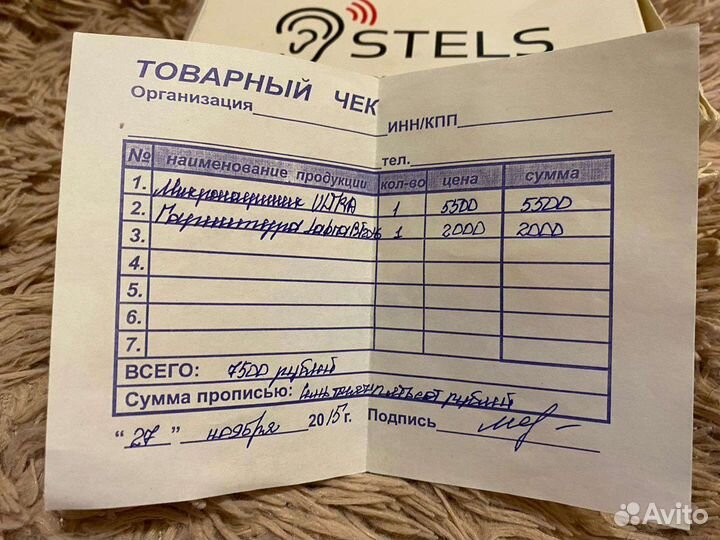 STELS
ТОВАРНЫЙ ЧЕК
Организация ИНН/КПП
тел.
№ наименование продукции кол-во цена сумма
1. Микронаушник ULTRA 1 5500 5500
2. Гарнитура 1 2000 2000
3.
4.
5.
6.
7.
ВСЕГО: 7500 рублей
Сумма прописью: Семь тысяч пятьсот рублей
"27" ноября 2015г. Подпись
Avito